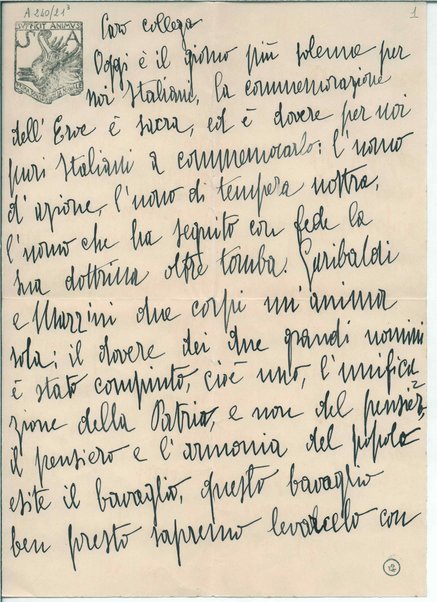 A 260/21³
1
SUFFICIT ANIMUS
S A
Caro collega
Oggi è il giorno più solenne per
noi Italiani, la commemorazione
dell'Eroe è sacra, ed è dovere per noi
puri Italiani a commemorarlo: l'uomo
d'azione, l'uomo di tempera nostra,
l'uomo che ha seguito con fede la
sua dottrina oltre tomba. Garibaldi
e Mazzini due corpi un'anima
sola; il dovere dei due grandi uomini
è stato compiuto, cioè uno, l'unifica
zione della Patria, e non del pensiero,
il pensiero e l'armonia del popolo
esite il bavaglio, questo bavaglio
ben presto sapremo levarcelo con
2